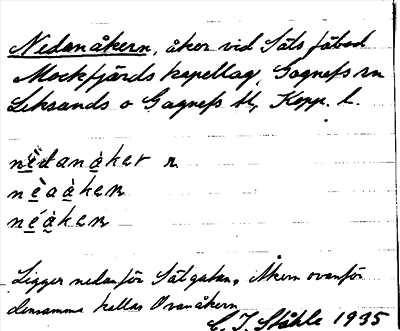 Nedanåkern, åker vid Säts fäbod
Mockfjärds kapellag, Gagnefs sn
Leksands o Gagnefs tl, Kopp. l.
nèdanàker n
nèaàken
nèàken
Ligger nedanför Sätgatan, Åkern ovanför
densamma kallas Ovanåkern
C. I. Ståhle 1935